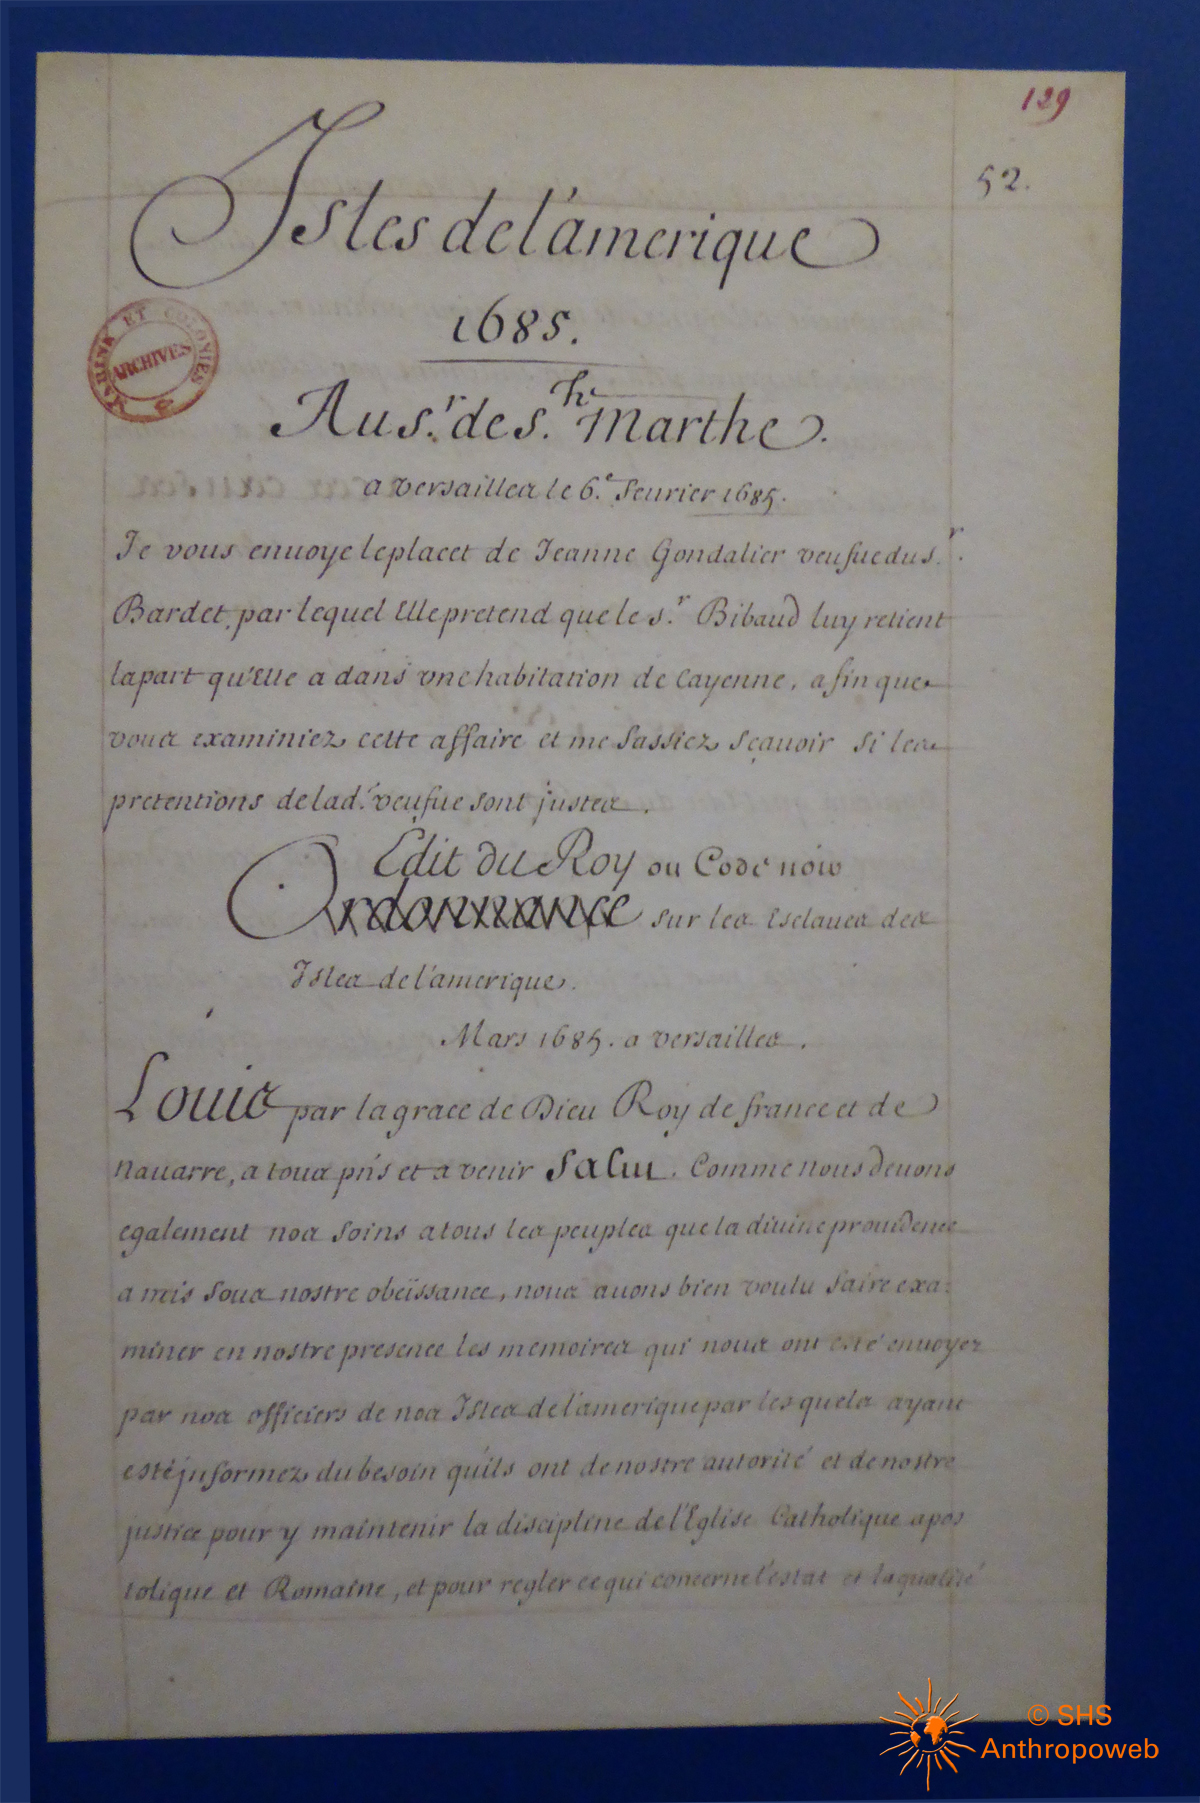 129
52.
Isles de l'amerique
1685.
MARINE ET COLONIES
ARCHIVES
Au s.r de s.te Marthe.
a versailles le 6.e feurier 1685.
Je vous enuoye le placet de Jeanne Gondalier veufue du s.r
Bardet, par lequel Elle pretend que le s.r Bibaud luy retient
la part qu'Elle a dans vne habitation de Cayenne, afin que
vous examiniez cette affaire et me fassiez sçauoir si les
pretentions de lad.e veufue sont justes.
Edit du Roy ou Code noir
Ordonnance sur les Esclaues des
Isles de l'amerique.
Mars 1685. a versailles.
Louis par la grace de Dieu Roy de france et de
nauarre, a tous pñs et a venir Salut. Comme nous deuons
egalement nos soins a tous les peuples que la diuine prouidence
a mis sous nostre obeïssance, nous auons bien voulu faire exa-
miner en nostre presence les memoires qui nous ont esté enuoyez
par nos officiers de nos Isles de l'amerique par les quels ayant
esté jnformez du besoin qu'ils ont de nostre autorité et de nostre
justice pour y maintenir la discipline de l'Eglise Catholique apos
tolique et Romaine, et pour regler ce qui concerne l'estat et la qualité
© SHS
Anthropoweb